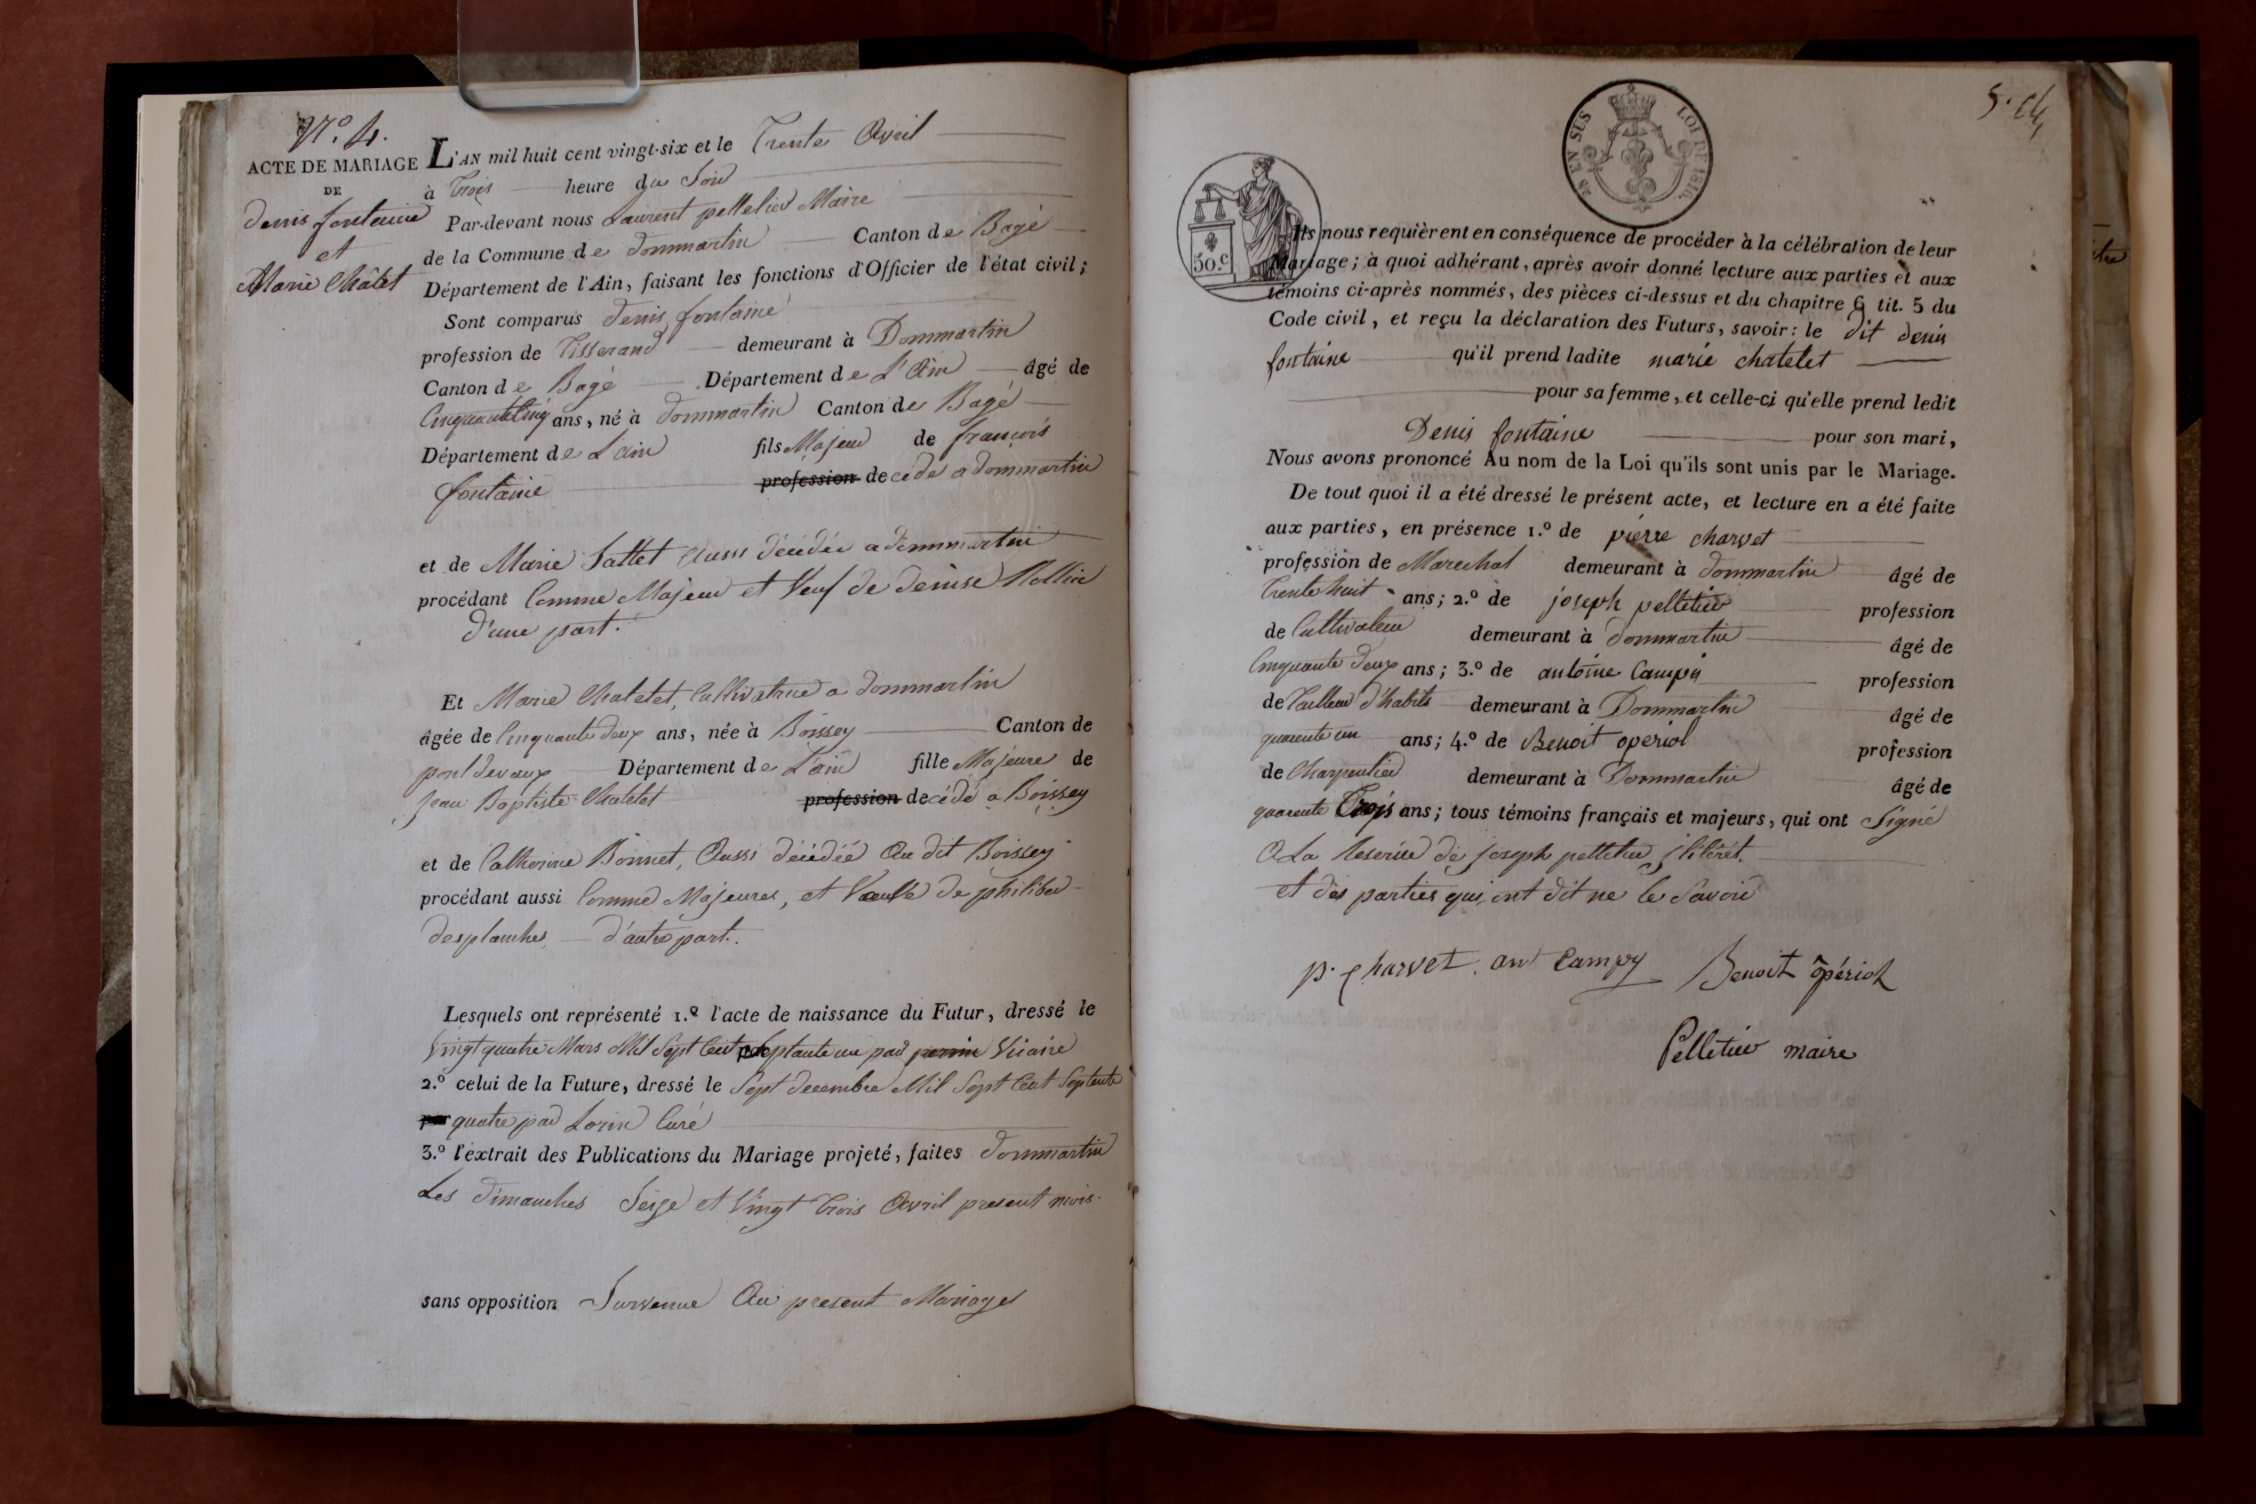 N.o 4.
ACTE DE MARIAGE
DE
denis fontaine
et
Marie Châtet
L'AN mil huit cent vingt-six et le Trente Avril
à Trois heure du Soir
Par-devant nous Laurent pelletier Maire
de la Commune de dommartin Canton de Bagé
Département de l'Ain, faisant les fonctions d'Officier de l'état civil;
Sont comparus denis fontaine
profession de Tisserand demeurant à Dommartin
Canton de Bagé Département de L'Ain âgé de
Cinquante Cinq ans, né à dommartin Canton de Bagé
Département de L'ain fils Majeur de françois
fontaine profession decédé a dommartin
et de Marie Sallet Aussi décédée a dommartin
procédant Comme Majeur et Veuf de denise Mollin
d'une part.
Et Marie Chatelet, Cultivatrice a dommartin
âgée de Cinquante deux ans, née à Boissey Canton de
pont devaux Département de L'ain fille Majeure de
Jean Baptiste Chatelet profession decédé a Boissey
et de Catherine Bonnet, Aussi décédée Au dit Boissey
procédant aussi Comme Majeure, et Veuve de philiber
desplanches d'autre part.
Lesquels ont représenté 1.o l'acte de naissance du Futur, dressé le
Vingt quatre Mars Mil Sept Cent Septante un par Vicaire
2.o celui de la Future, dressé le Sept decembre Mil Sept Cent Septente
quatre par Lorin Curé
3.o l'extrait des Publications du Mariage projeté, faites dommartin
Les dimanches Seize et Vingt trois Avril present mois.
sans opposition Survenue Au present Mariage
5.
LOI DE 1816.
50.c
Ils nous requièrent en conséquence de procéder à la célébration de leur
Mariage; à quoi adhérant, après avoir donné lecture aux parties et aux
témoins ci-après nommés, des pièces ci-dessus et du chapitre 6 tit. 5 du
Code civil, et reçu la déclaration des Futurs, savoir: le dit denis
fontaine qu'il prend ladite marie chatelet
pour sa femme, et celle-ci qu'elle prend ledit
Denis fontaine pour son mari,
Nous avons prononcé Au nom de la Loi qu'ils sont unis par le Mariage.
De tout quoi il a été dressé le présent acte, et lecture en a été faite
aux parties, en présence 1.o de piérre charvet
profession de Marechal demeurant à dommartin âgé de
Trente huit ans; 2.o de joseph pelletier profession
de Cultivateur demeurant à dommartin âgé de
Cinquante deux ans; 3.o de antoine Campi profession
de Tailleur d'habits demeurant à Dommartin âgé de
quarente un ans; 4.o de Benoit opériol profession
de Charpentier demeurant à Dommartin âgé de
quarente Trois ans; tous témoins français et majeurs, qui ont Signé
A La Reserve de joseph pelletier, jlileret.
et des parties qui ont dit ne le Savoir
p. charvet. ant Campy Benoit opériol
Pelletier maire